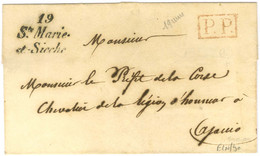 19
Ste Marie-
et-Sicche
P.P.
Monsieur
Monsieur le Préfet de la Corse
Chevalier de la légion d'honneur à
Ajaccio